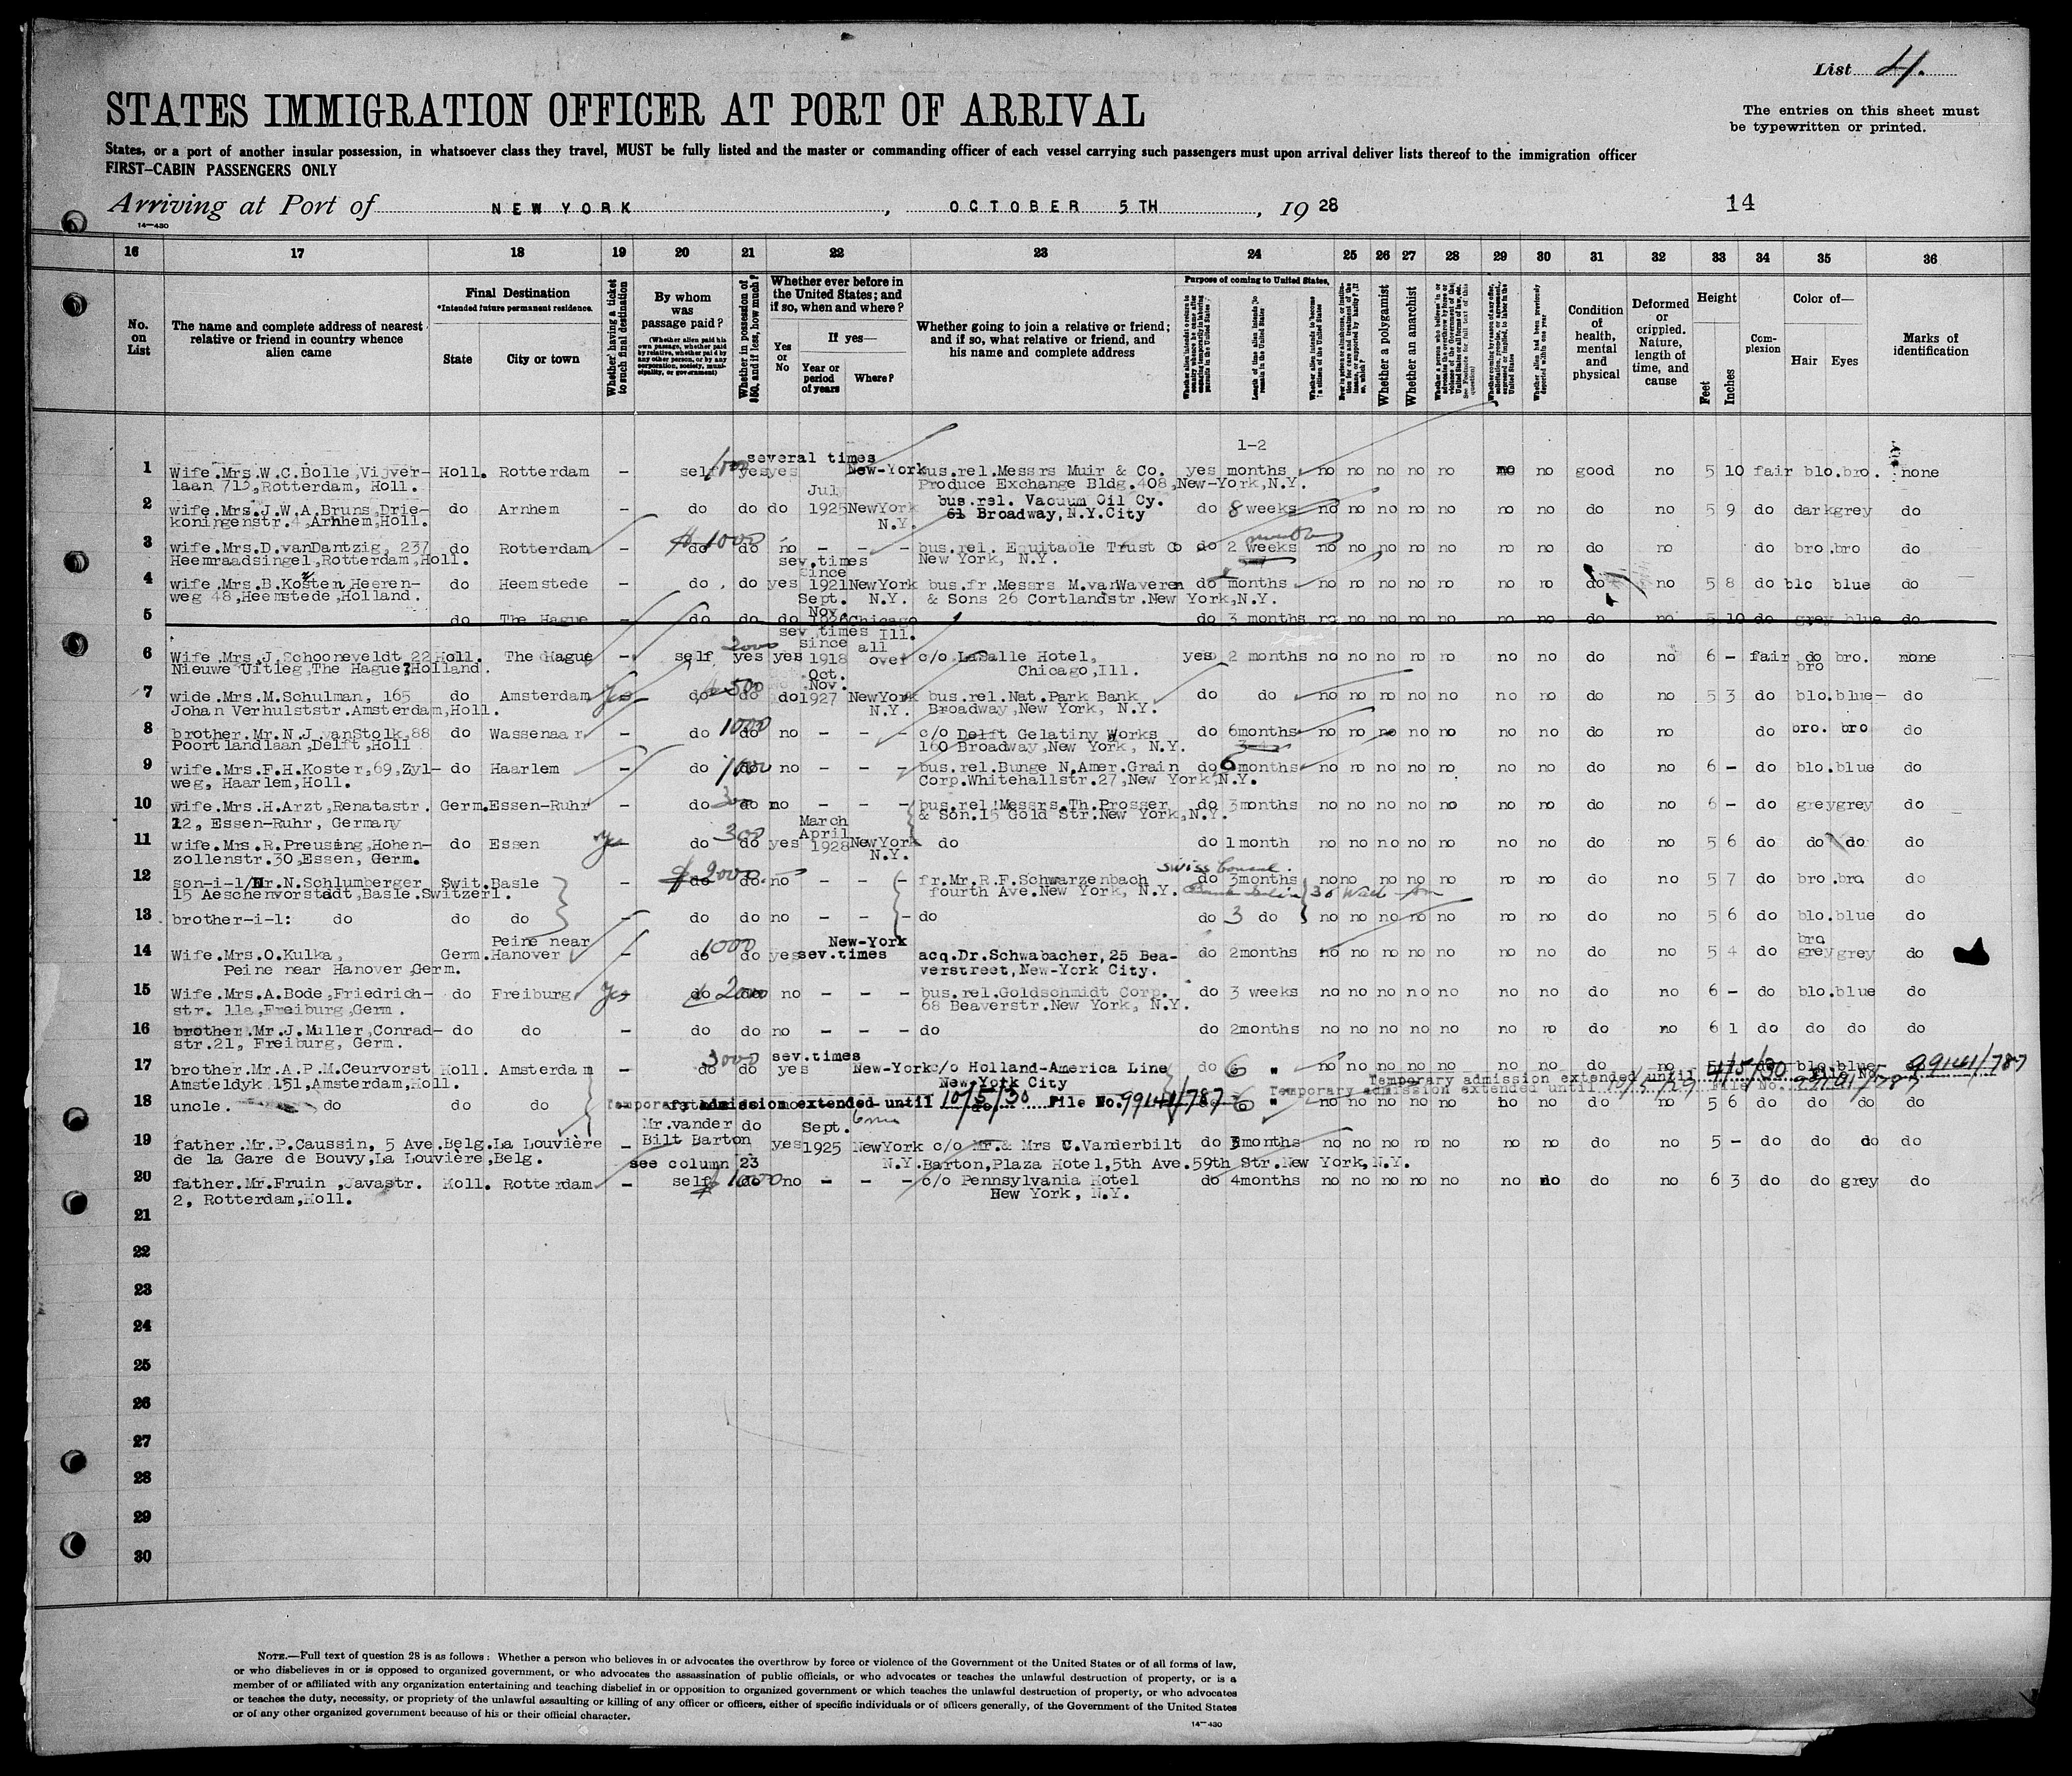 List 4.
STATES IMMIGRATION OFFICER AT PORT OF ARRIVAL
The entries on this sheet must
be typewritten or printed.
States, or a port of another insular possession, in whatsoever class they travel, MUST be fully listed and the master or commanding officer of each vessel carrying such passengers must upon arrival deliver lists thereof to the immigration officer
FIRST-CABIN PASSENGERS ONLY
Arriving at Port of NEW YORK, OCTOBER 5TH, 1928
14
14—430
16 17 18 19 20 21 22 23 24 25 26 27 28 29 30 31 32 33 34 35 36
No. on List
The name and complete address of nearest relative or friend in country whence alien came
Final Destination
*Intended future permanent residence.
State
City or town
Whether having a ticket to such final destination
By whom was passage paid?
(Whether alien paid his own passage, whether paid by relative, whether paid by any other person, or by any corporation, society, municipality, or government)
Whether in possession of $50, and if less, how much?
Whether ever before in the United States; and if so, when and where?
Yes or No
If yes—
Year or period of years
Where?
Whether going to join a relative or friend; and if so, what relative or friend, and his name and complete address
Purpose of coming to United States.
Length of time alien intends to remain in the United States
Whether alien intends to become a citizen of the United States
Whether a polygamist
Whether an anarchist
Whether alien had been previously deported within one year
Condition of health, mental and physical
Deformed or crippled. Nature, length of time, and cause
Height
Feet
Inches
Complexion
Color of—
Hair
Eyes
Marks of identification
several times 1-2
1 Wife.Mrs.W.C.Bolle,Vijver- Holl. Rotterdam — self 1000 yes yes New-York bus.rel.Messrs Muir & Co. yes months no no no no no no no good no 5 10 fair blo. bro. none
laan 713,Rotterdam, Holl. Produce Exchange Bldg.408,New-York,N.Y.
July
2 wife.Mrs.J.W.A.Bruns,Drie- do Arnhem — do do do 1925 NewYork bus.rel. Vacuum Oil Cy. do 8 weeks no no no no no no no do no 5 9 do dark grey do
koningenstr.4,Arnhem,Holl. N.Y. 61 Broadway,N.Y.City
3 wife.Mrs.D.vanDantzig, 237 do Rotterdam — do $1000 do no — — — bus.rel. Equitable Trust Co do 2 weeks months no no no no no no no do no do bro. bro do
Heemraadsingel,Rotterdam,Holl. New York, N.Y.
sev.times
since
4 wife.Mrs.B.Kosten,Heeren- do Heemstede — do do yes 1921 NewYork bus.fr.Messrs M.varWaveren do months no no no no no no no do no 5 8 do blo blue do
weg 48,Heemstede,Holland. Sept. N.Y. & Sons 26 Cortlandstr.New York,N.Y.
Nov.
5 do The Hague — do do do 1926 Chicago do 3 months no no no no no no no do no 5 10 do grey blue do
sev times Ill.
since all
6 Wife.Mrs.J.Schooneveldt,22 Holl. The Hague — self 2000 yes yes 1918 over c/o LaSalle Hotel, yes 2 months no no no no no no no do no 6 — fair do bro. none
Nieuwe Uitleg,The Hague,Holland. Chicago,Ill. bro
Oct.
Nov.
7 wide.Mrs.M.Schulman, 165 do Amsterdam yes do 500 do do 1927 NewYork bus.rel.Nat.Park Bank do do no no no no no no no do no 5 3 do blo. blue— do
Johan Verhulststr.Amsterdam,Holl. N.Y. Broadway,New York, N.Y.
8 brother.Mr.N.J.vanStolk,88 do Wassenaar — do 1000 do no — — — c/o Delft Gelatiny Works do 6months no no no no no no no do no do bro. bro do
Poortlandlaan,Delft,Holl 160 Broadway,New York, N.Y. 3-4
9 wife.Mrs.F.H.Koster,69,Zyl- do Haarlem — do 1000 do no — — — bus.rel.Bunge N.Amer.Grain do 6months no no no no no no no do no 6 — do blo. blue do
weg, Haarlem,Holl. Corp.Whitehallstr.27,New York,N.Y.
10 wife.Mrs.H.Arzt,Renatastr. Germ. Essen-Ruhr — do 300 do no — — — bus.rel.Messrs.Th.Prosser do 3months no no no no no no no do no 6 — do grey grey do
12, Essen-Ruhr, Germany & Son.15 Gold Str.New York,N.Y.
March
April
11 wife.Mrs.R.Preusing,Hohen- do Essen yes do 300 do yes 1928 NewYork do do 1month no no no no no no no do no 5 6 do do do do
zollenstr.30,Essen, Germ. N.Y.
Swiss Consul.
12 son-i-l/Mr.N.Schlumberger Swit. Basle — do $2000 do. no — — — fr.Mr.R.F.Schwarzenbach do 3months no no no no no no no do no 5 7 do bro. bro. do
15 Aeschenvorstadt,Basle.Switzerl. fourth Ave.New York, N.Y.
13 brother-i-l: do do do — do do no — — — do do 3 do no no no no no no no do no 5 6 do blo. blue do
Peine near New-York bro
14 Wife.Mrs.O.Kulka, Germ. Hanover — do 1000 do yes sev.times acq.Dr.Schwabacher,25 Bea- do 2months no no no no no no no do no 5 4 do grey grey do
Peine near Hanover,Germ. verstreet,New-York City.
15 Wife.Mrs.A.Bode,Friedrich- do Freiburg yes do 2000 do no — — — bus.rel.Goldschmidt Corp. do 3 weeks no no no no no no no do no 6 — do blo. blue do
str. 11a,Freiburg,Germ. 68 Beaverstr.New York, N.Y.
16 brother.Mr.J.Muller,Conrad- do do — do do no — — — do do 2months no no no no no no no do no 6 1 do do do do
str.21, Freiburg, Germ.
sev.times
17 brother.Mr.A.P.M.Ceurvorst Holl. Amsterdam — do 3000 do yes New-York c/o Holland-America Line do 6 " no no no no no no no do no blo. blue
Amsteldyk 151,Amsterdam,Holl. New York City
Temporary admission extended until 4/5/30 File No. 99141/787
Temporary admission extended until 10/5/29 File No. 99141/787
18 uncle. do do do do 6 " no no no no no no no do no 5 6 do do do do
Temporary admission extended until 10/5/30 File No. 99141/787
Mr.vander do Sept. 6mo
19 father.Mr.P.Caussin, 5 Ave. Belg. La Louvière — Bilt Barton yes 1925 NewYork c/o Mr.& Mrs C.Vanderbilt do 3months no no no no no no no do no 5 — do do do do
de la Gare de Bouvy,La Louvière,Belg. see column 23 N.Y. Barton,Plaza Hotel,5th Ave.59th Str.New York,N.Y.
20 father.Mr.Fruin ,Javastr. Holl. Rotterdam — self $1000 do no — — — c/o Pennsylvania Hotel do 4months no no no no no no no do no 6 3 do do grey do
2, Rotterdam,Holl. New York, N.Y.
21
22
23
24
25
26
27
28
29
30
NOTE.—Full text of question 28 is as follows: Whether a person who believes in or advocates the overthrow by force or violence of the Government of the United States or of all forms of law,
or who disbelieves in or is opposed to organized government, or who advocates the assassination of public officials, or who advocates or teaches the unlawful destruction of property, or is a
member of or affiliated with any organization entertaining and teaching disbelief in or opposition to organized government or which teaches the unlawful destruction of property, or who advocates
or teaches the duty, necessity, or propriety of the unlawful assaulting or killing of any officer or officers, either of specific individuals or of officers generally, of the Government of the United States
or of any other organized government because of his or their official character.
14—430